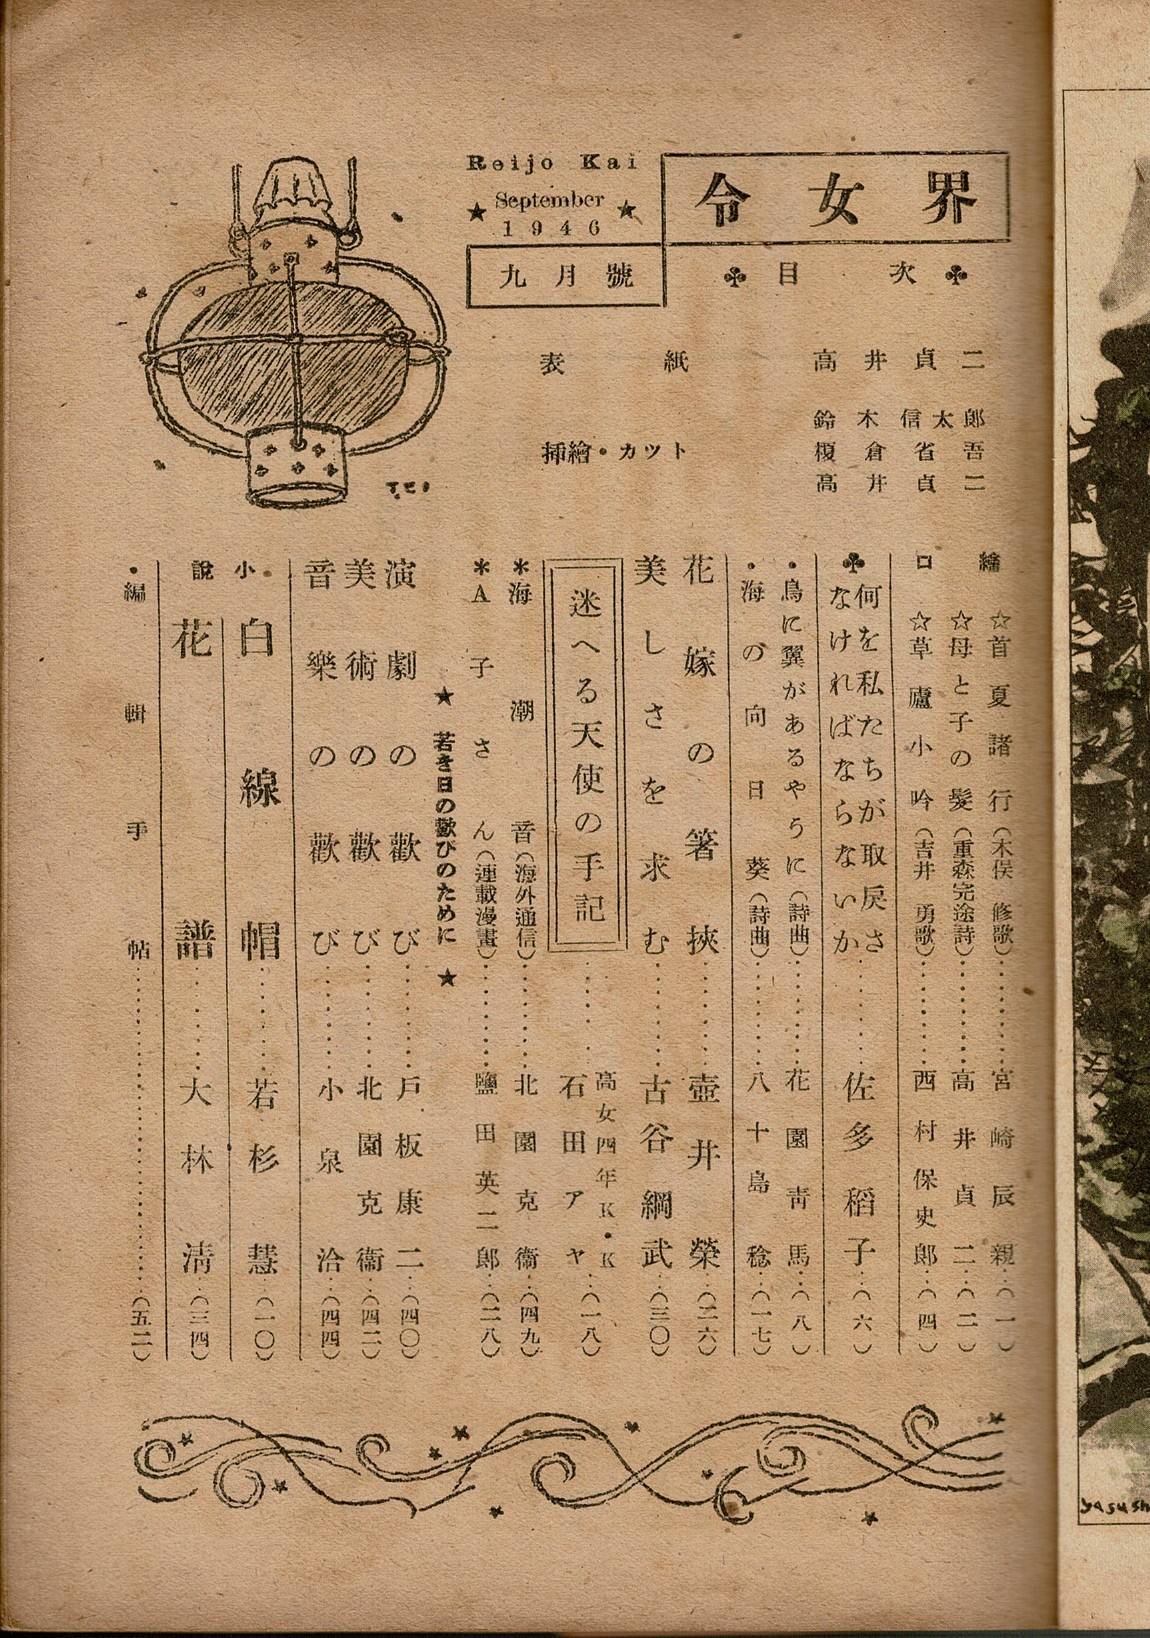 令女界
Reijo Kai
★ September ★
1946
九月號
♣ 目次 ♣
表紙 高井貞二
挿繪・カツト 鈴木信太郎
榎倉省吾
高井貞二
口繪
☆首夏諸行(木俣修歌)………宮崎辰親…(一)
☆母と子の髪(重森完途詩)………高井貞二…(二)
☆草廬小吟(吉井勇歌)………西村保史郎…(四)
♣何を私たちが取戻さ
なければならないか………佐多稻子…(六)
・鳥に翼があるやうに(詩曲)………花園靑馬…(八)
・海の向日葵(詩曲)………八十島稔…(一七)
花嫁の箸挾………壺井榮…(二六)
美しさを求む………古谷綱武…(三〇)
迷へる天使の手記………高女四年K・K
石田アヤ…(一八)
*海潮音(海外通信)………北園克衞…(四九)
*A子さん(連載漫畫)………鹽田英二郎…(二八)
★ 若き日の歡びのために ★
演劇の歡び………戸板康二…(四〇)
美術の歡び………北園克衞…(四二)
音樂の歡び………小泉洽…(四四)
小說
白線帽………若杉慧…(一〇)
花譜………大林淸…(三四)
・編輯手帖………(五二)